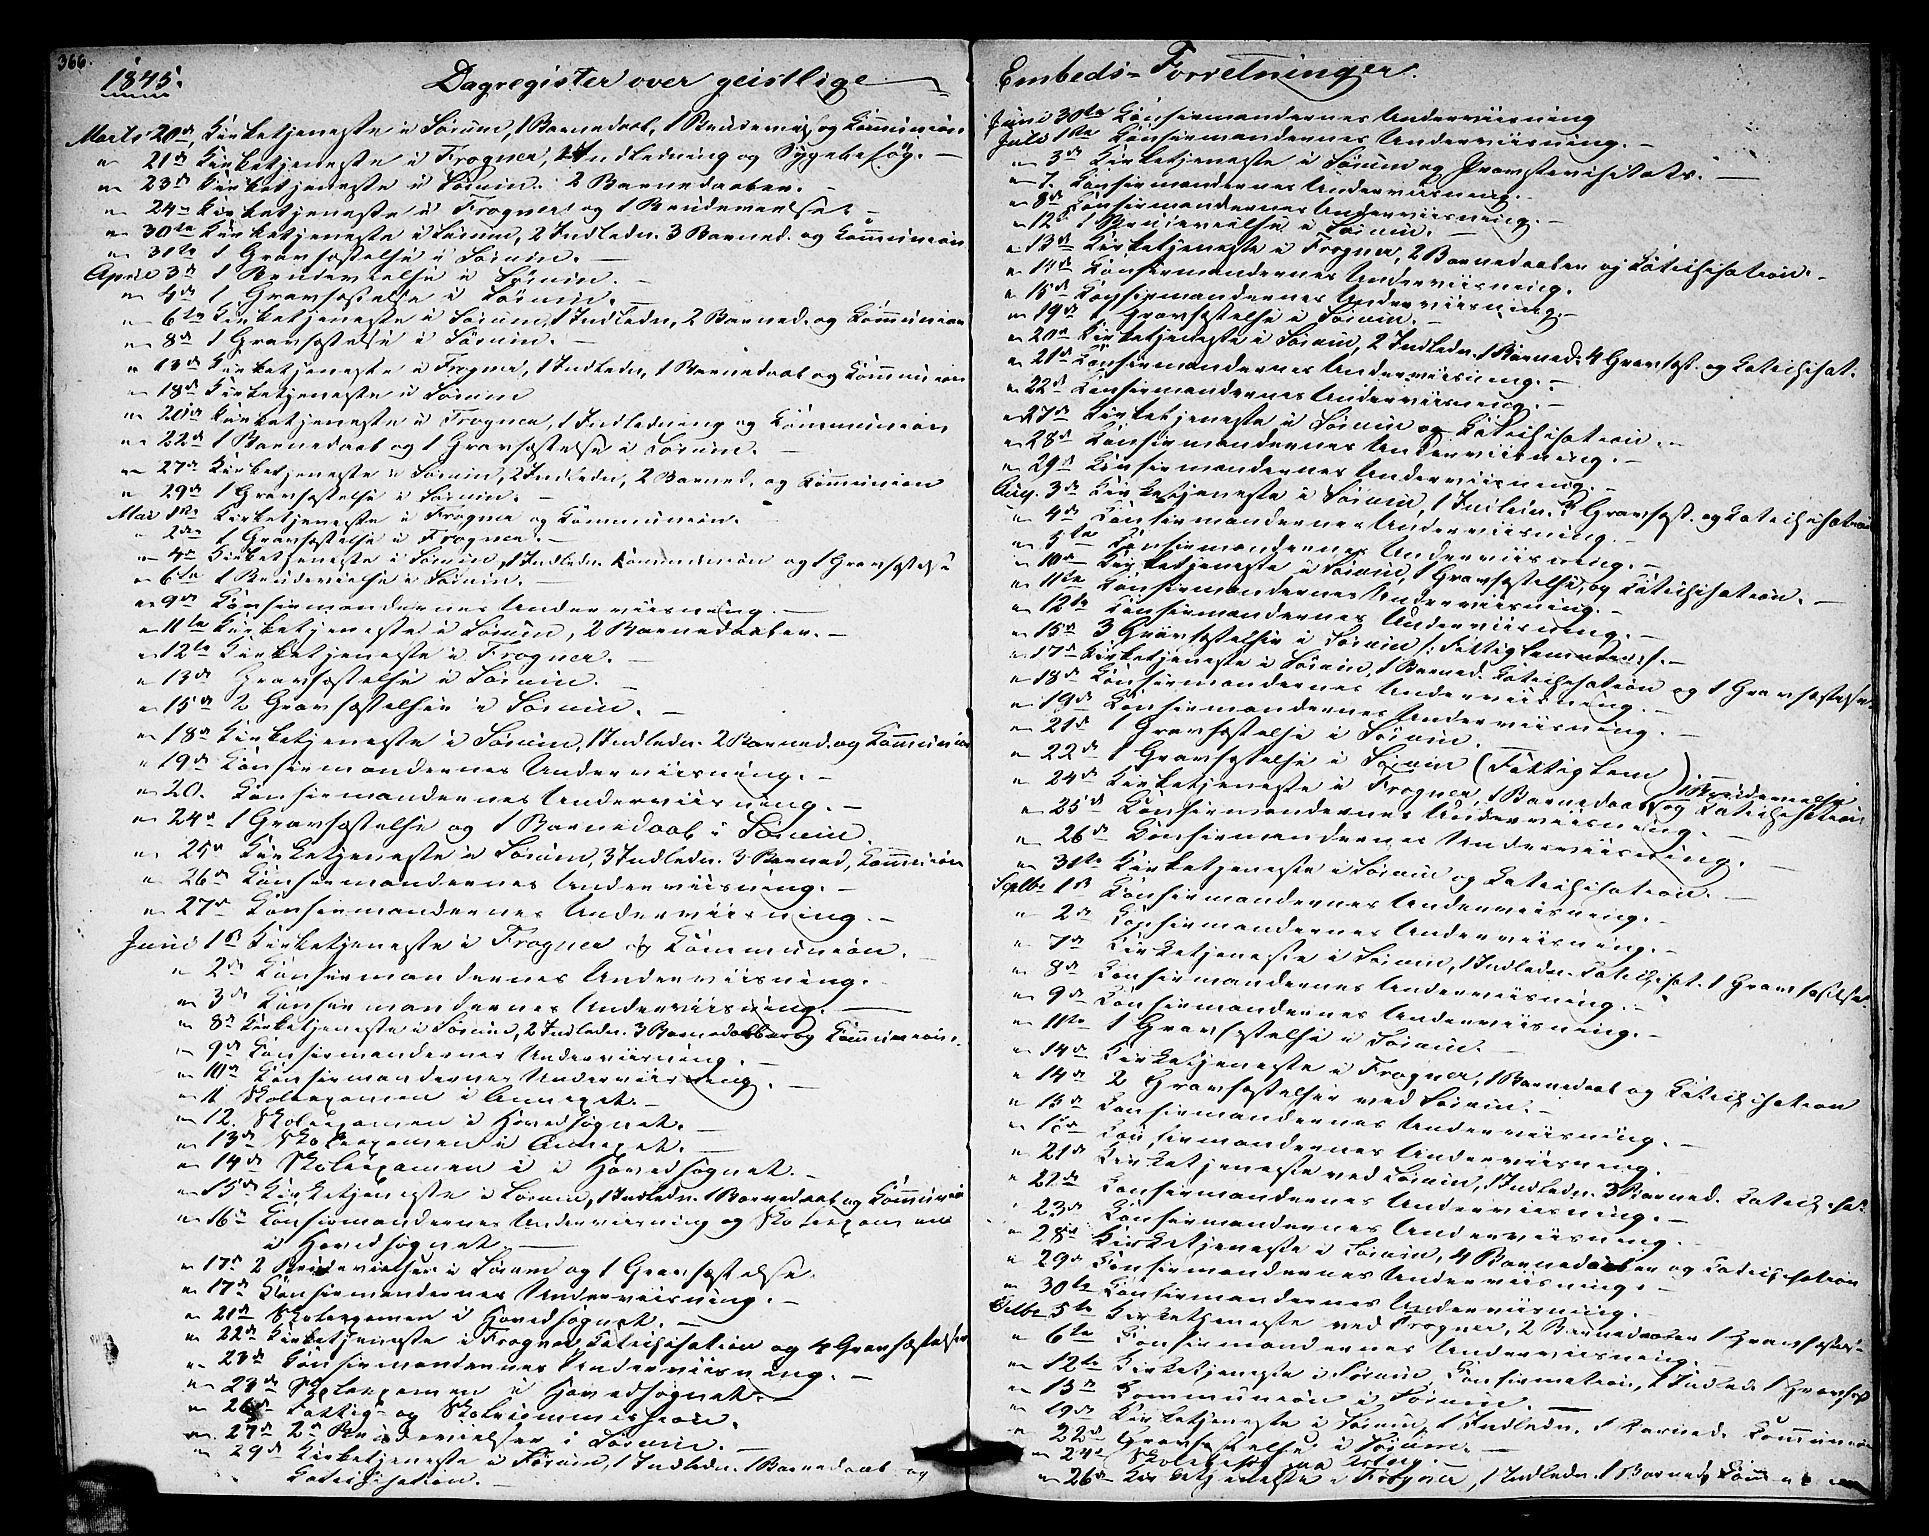 366.
1845.
Dagregister over geistlige
Marts 20de, Kirketjeneste i Sørum, 1 Barnedaab, 1 Brudevielse og Kommunion
" 21de Kirketjeneste i Frogner, 1 Indledning og Sygebesøg. —
" 23de Kirketjeneste i Sørum. 2 Barnedaaber. —
" 24de Kirketjeneste i Frogner og 1 Brudevielse. —
" 30te Kirketjeneste i Sørum, 2 Indledn. 3 Barned. og Kommunion
" 31te 1 Gravfæstelse i Sørum. —
April 3de 1 Brudevielse i Sørum. —
" 4de 1 Gravfæstelse i Sørum. —
" 6te Kirketjeneste i Sørum, 1 Indledn, 2 Barned. og Kommunion
" 8de 1 Gravfæstelse i Sørum. —
" 13de Kirketjeneste i Frogner, 1 Indledn, 1 Barnedaab og Kommunion
" 18de Kirketjeneste i Sørum
" 20de Kirketjeneste i Frogner, 1 Indledning og Kommunion
" 22de 1 Barnedaab og 1 Gravfæstelse i Sørum. —
" 27de Kirketjeneste i Sørum, 2 Indledn, 2 Barned, og Kommunion
" 29de 1 Gravfæstelse i Sørum. —
Mai 1ste Kirketjeneste i Frogner og Kommunion.
" 2den 1 Gravfæstelse i Frogner. —
" 4de Kirketjeneste i Sørum, 1 Indledn. Kommunion og 1 Gravfæstelse
" 6te 1 Brudevielse i Sørum. —
" 9de Konfirmandernes Underviisning. —
" 11te Kirketjeneste i Sørum, 2 Barnedaaber. —
" 12te Kirketjeneste i Frogner. —
" 13de Gravfæstelse i Sørum. —
" 15de 2 Gravfæstelser i Sørum. —
" 18de Kirketjeneste i Sørum, 1 Indledn. 2 Barned. og Kommunion
" 19de Konfirmandernes Underviisning. —
" 20. Konfirmandernes Underviisning. —
" 24de 1 Gravfæstelse og 1 Barnedaab i Sørum.
" 25de Kirketjeneste i Sørum, 3 Indledn. 3 Barned, Kommunion
" 26de Konfirmandernes Underviisning. —
" 27de Konfirmandernes Underviisning. —
Juni 1ste Kirketjeneste i Frogner og Kommunion. —
" 2de Konfirmandernes Underviisning. —
" 3de Konfirmandernes Underviisning. —
" 8de Kirketjeneste i Sørum, 2 Indledn. 3 Barnedaaber og Kommunion.
" 9de Konfirmandernes Underviisning. —
" 10de Konfirmandernes Underviisning. —
" 11 Skoleexamen i Annexet. —
" 12. Skoleexamen i Hovedsognet. —
" 13de Skoleexamen i Annexet. —
" 14de Skoleexamen i i Hovedsognet. —
" 15de Kirketjeneste i Sørum, 1 Indledn. 1 Barnedaab og Kommunion
" 16de Konfirmandernes Underviisning og Skoleexamen
i Hovedsognet. —
" 17de 2 Brudevielser i Sørum og 1 Gravfæstelse.
" 17de Konfirmandernes Underviisning. —
" 21de Skoleexamen i Hovedsognet. —
" 22de Kirketjeneste i Frogner Katechisation og 4 Gravfæstelser
" 23de Konfirmandernes Underviisning. —
" 23de Skoleexamen i Hovedsognet. —
" 26de Fattig- og Skolecommission.
" 27de 2 Brudevielser i Sørum. —
" 29de Kirketjeneste i Sørum, 1 Indledn. 1 Barnedaab og
Katechisation. —
Embeds-Forretninger.
Juni 30te Konfirmandernes Underviisning
Juli 1ste Konfirmandernes Underviisning. —
" 3de Kirketjeneste i Sørum og Provstevisitats. —
" 7. Konfirmandernes Underviisning.
" 8de Konfirmandernes Underviisning. —
" 12te 1 Brudevielse i Sørum. —
" 13de Kirketjeneste i Frogner, 2 Barnedaaber og Katechisation. —
" 14de Konfirmandernes Underviisning.
" 15de Konfirmandernes Underviisning. —
" 19de 1 Gravfæstelse i Sørum. —
" 20de Kirketjeneste i Sørum, 2 Indledn. 1 Barned. 4 Gravfæst. og Katechisat.
" 21de Konfirmandernes Underviisning. —
" 22de Konfirmandernes Underviisning. —
" 27de Kirketjeneste i Sørum og Katechisation. —
" 28de Konfirmandernes Underviisning. —
" 29de Konfirmandernes Underviisning. —
Aug. 3de Kirketjeneste i Sørum, 1 Indledn. Gravfæst. og Katechisation
" 4de Konfirmandernes Underviisning. —
" 5te Konfirmandernes Underviisning. —
" 10de Kirketjeneste i Sørum, 1 Gravfæstelse, og Katechisation. —
" 11te Konfirmandernes Underviisning. —
" 12te Konfirmandernes Underviisning. —
" 15de 3 Gravfæstelser i Sørum
" 17de Kirketjeneste i Sørum, 1 Barned. Katechisation og 1 Gravfæstelse
" 18de Konfirmandernes Underviisning. —
" 19de Konfirmandernes Underviisning. —
" 21de 1 Gravfæstelse i Sørum.
" 22de 1 Gravfæstelse i Sørum (Fattiglem) 1 Brudevielse
" 24de Kirketjeneste i Frogner, 1 Barnedaab og Katechisation
" 25de Konfirmandernes Underviisning. —
" 26de Konfirmandernes Underviisning. —
" 31te Kirketjeneste i Sørum og Katechisation. —
Septbr 1ste Konfirmandernes Underviisning. —
" 2de Konfirmandernes Underviisning. —
" 7de Kirketjeneste i Sørum, 1 Indledn. Katechisat. 1 Gravfæstelse.
" 8de Konfirmandernes Underviisning. —
" 9de Konfirmandernes Underviisning. —
" 11te 1 Gravfæstelse i Sørum. —
" 14de Kirketjeneste i Frogner, 1 Barnedaab og Katechisation
" 14de 2 Gravfæstelser ved Sørum. —
" 15de Konfirmandernes Underviisning. —
" 16de Konfirmandernes Underviisning.
" 21de Kirketjeneste ved Sørum, 1 Indledn. 3 Barned. Katechisat.
" 22de Konfirmandernes Underviisning. —
" 23de Konfirmandernes Underviisning. —
" 28de Kirketjeneste i Sørum, 4 Barnedaaber og Katechisation
" 29de Konfirmandernes Underviisning.
" 30te Konfirmandernes Underviisning. —
Octbr 5te Kirketjeneste ved Frogner, 2 Barnedaaber 1 Gravfæstelse
" 6te Konfirmandernes Underviisning. —
" 12te Kirketjeneste i Sørum, Konfirmation, 1 Indled. 1 Gravfæst
" 13de Kommunion i Sørum. —
" 19de Kirketjeneste i Sørum 1 Indledn. 1 Barned. Kommunion
" 22de Gravfæstelse i Sørum. —
" 24de
" 26de Kirketjeneste i Frogner, 1 Indledn. 1 Barned,